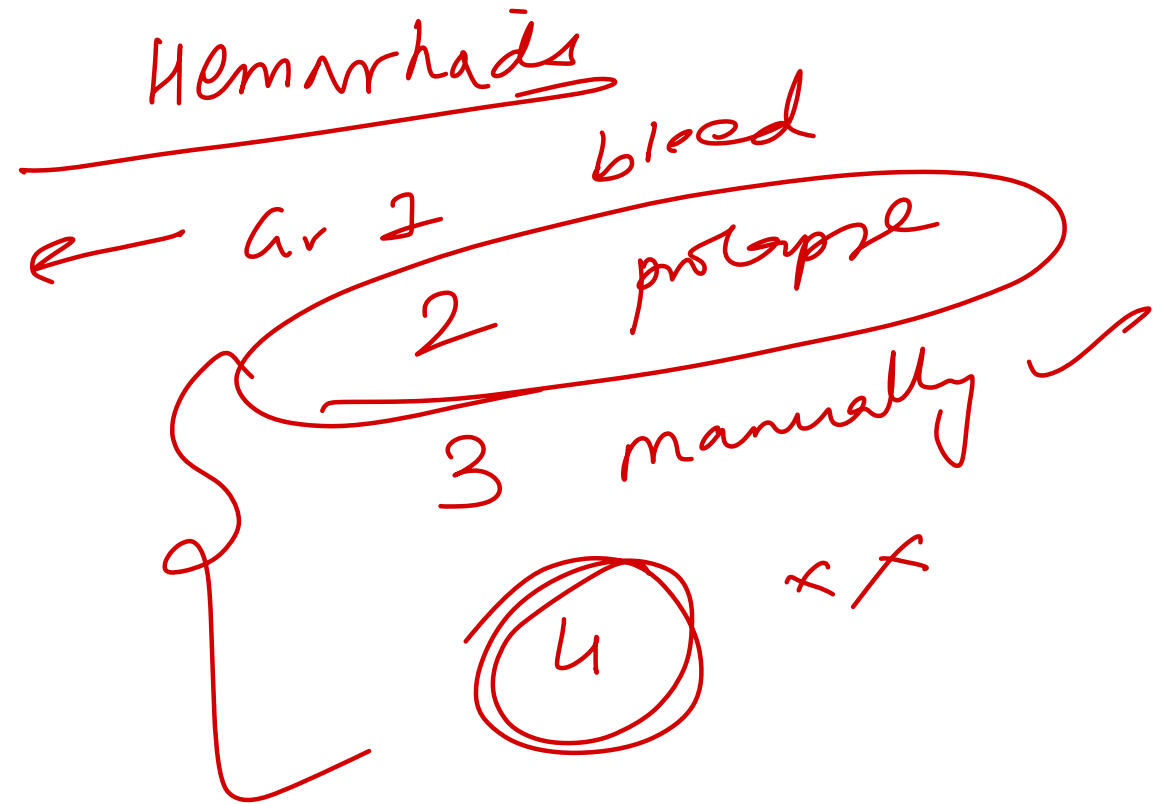 Hemorrhoids
Gr 1 bleed
2 prolapse
3 manually ✓
4 xx